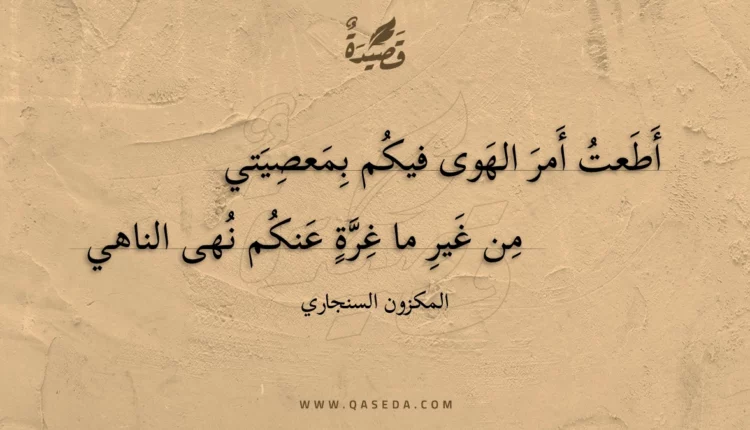 قَصِيدَةٌ
أَطَعتُ أَمرَ الهَوى فيكُم بِمَعصِيَتي
مِن غَيرِ ما غِرَّةٍ عَنكُم نُهى الناهي
المكزون السنجاري
WWW.QASEDA.COM